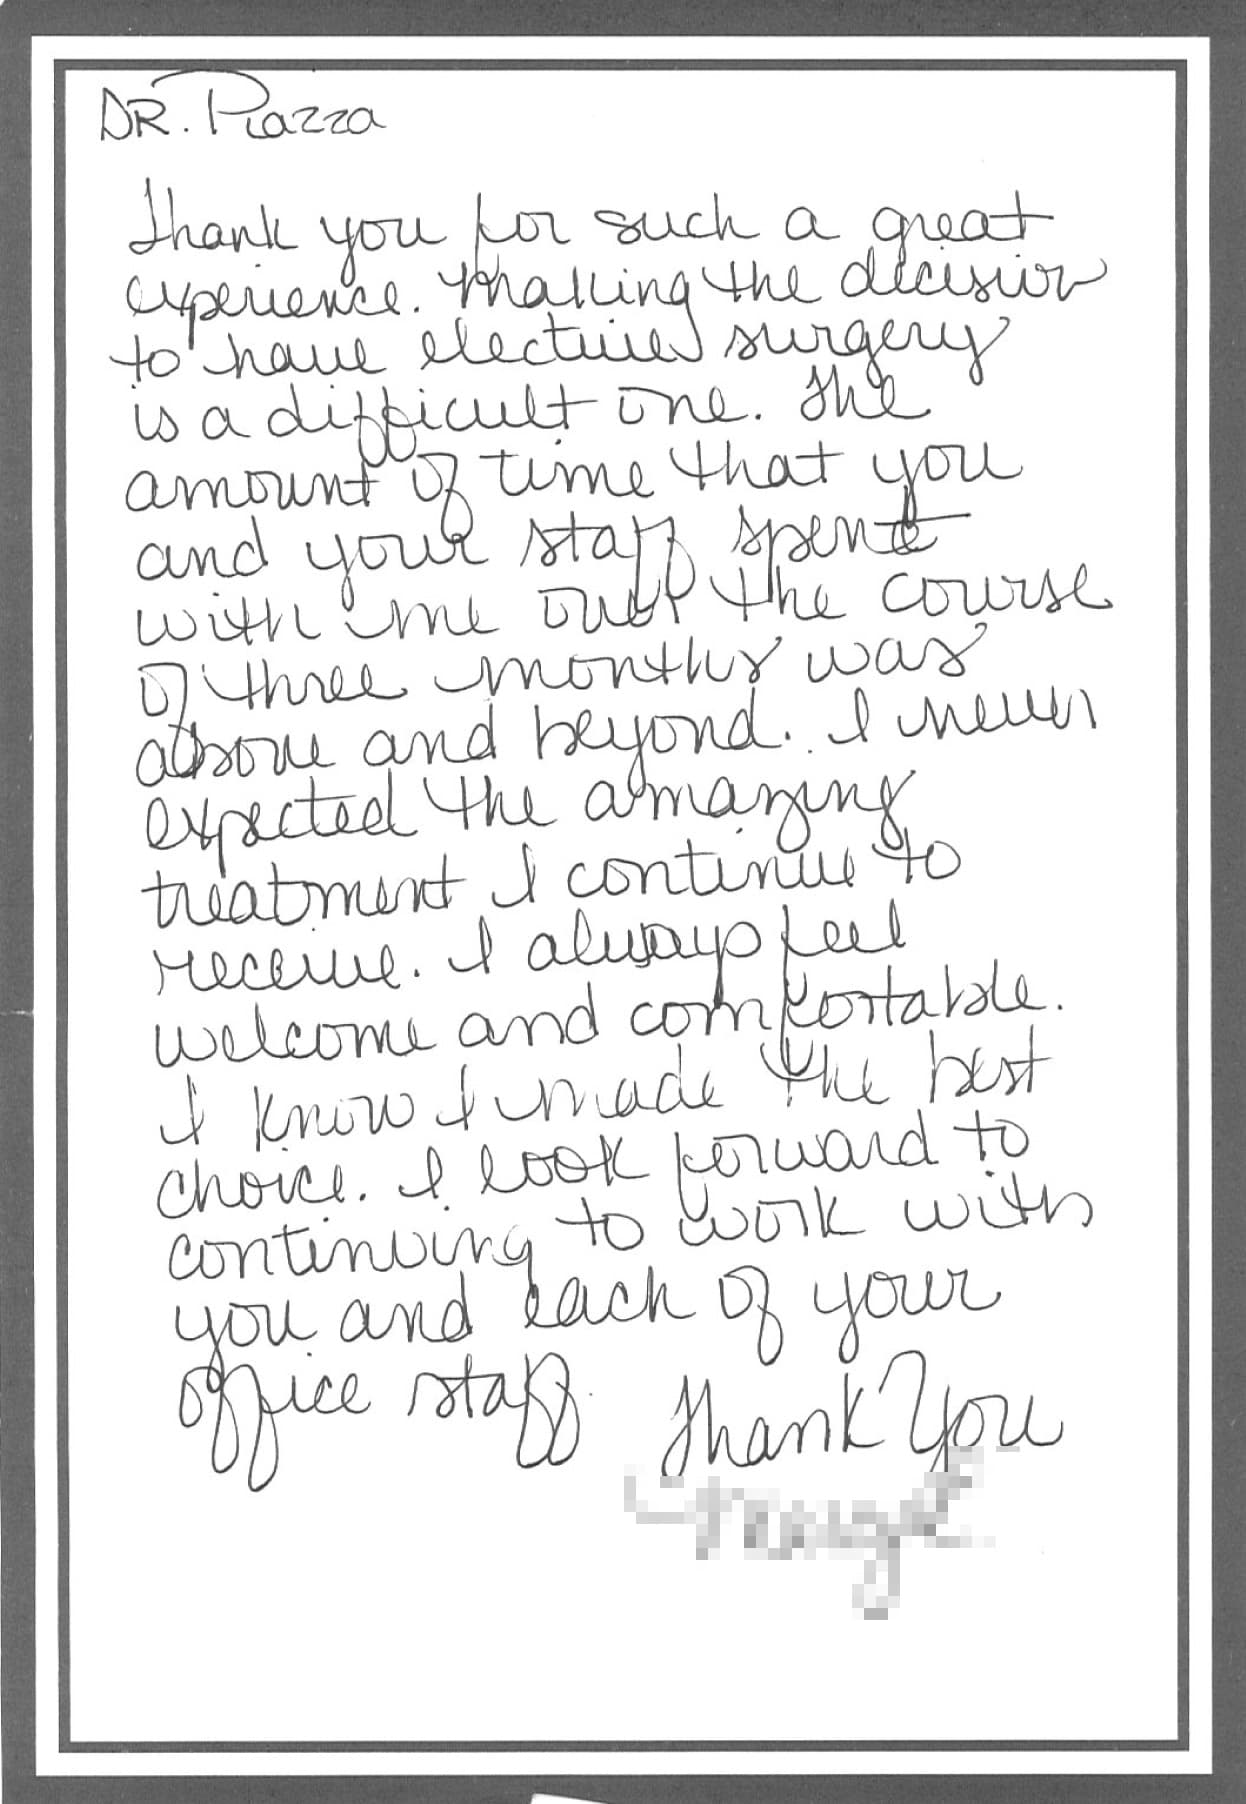 DR. Piazza
Thank you for such a great
experience. Making the decision
to have elective surgery
is a difficult one. The
amount of time that you
and your staff spent
with me over the course
of three months was
above and beyond. I never
expected the amazing
treatment I continue to
receive. I always feel
welcome and comfortable.
I know I made the best
choice. I look forward to
continuing to work with
you and each of your
office staff. Thank You